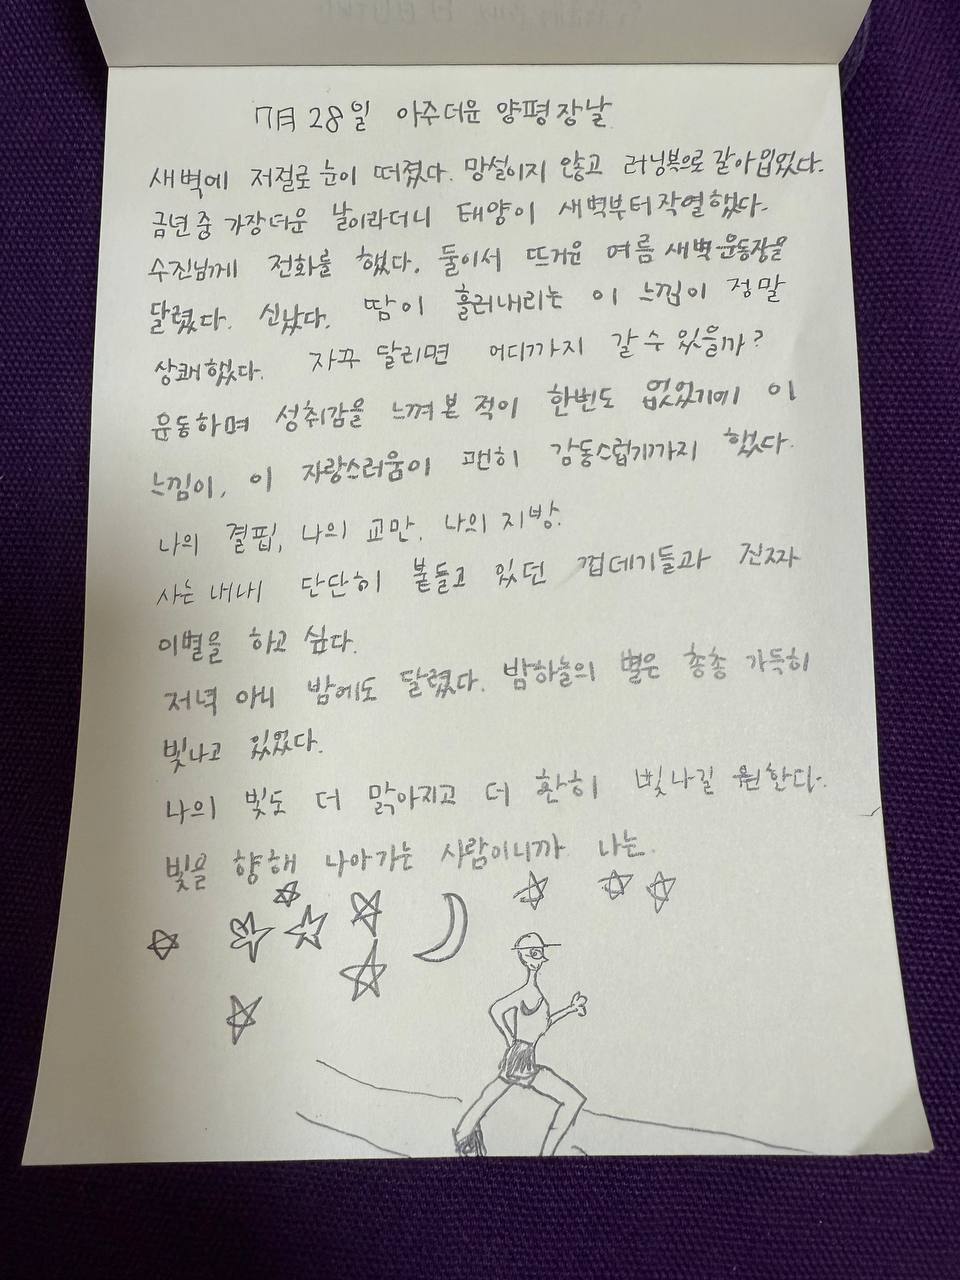 7月 28일 아주더운 양평장날
새벽에 저절로 눈이 떠졌다. 망설이지 않고 러닝복으로 갈아입었다.
금년 중 가장더운 날이라더니 태양이 새벽부터 작열했다.
수진님께 전화를 했다. 둘이서 뜨거운 여름 새벽 운동장을
달렸다. 신났다. 땀이 흘러내리는 이 느낌이 정말
상쾌했다. 자꾸 달리면 어디까지 갈 수 있을까?
운동하며 성취감을 느껴본 적이 한번도 없었기에 이
느낌이, 이 자랑스러움이 괜히 감동스럽기까지 했다.
나의 결핍, 나의 교만, 나의 지방.
사는 내내 단단히 붙들고 있던 껍데기들과 진짜
이별을 하고 싶다.
저녁 아니 밤에도 달렸다. 밤하늘의 별은 총총 가득히
빛나고 있었다.
나의 빛도 더 맑아지고 더 환히 빛나길 원한다.
빛을 향해 나아가는 사람이니까 나는.